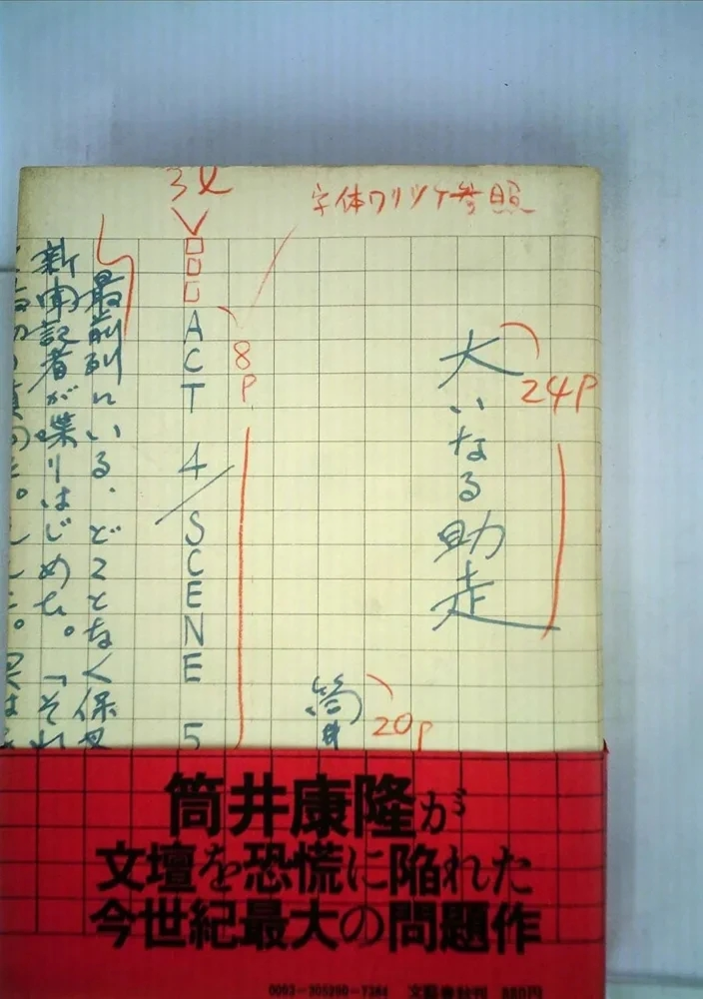 大いなる助走
24P
筒井
20P
字体ワリツケ参照
3ℓ
ACT 4/SCENE 5
8P
最前列にいる、どことなく保
新聞記者が喋りはじめた。「それ
筒井康隆が
文壇を恐慌に陥れた
今世紀最大の問題作
0093-305290-7384 文藝春秋刊 880円